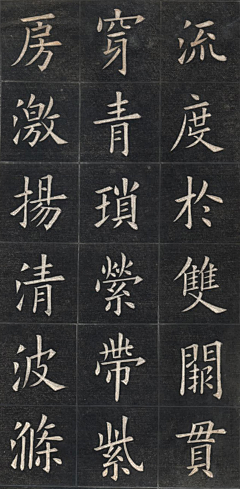 流度於雙闕貫
穿青瑣縈帶紫
房激揚清波滌